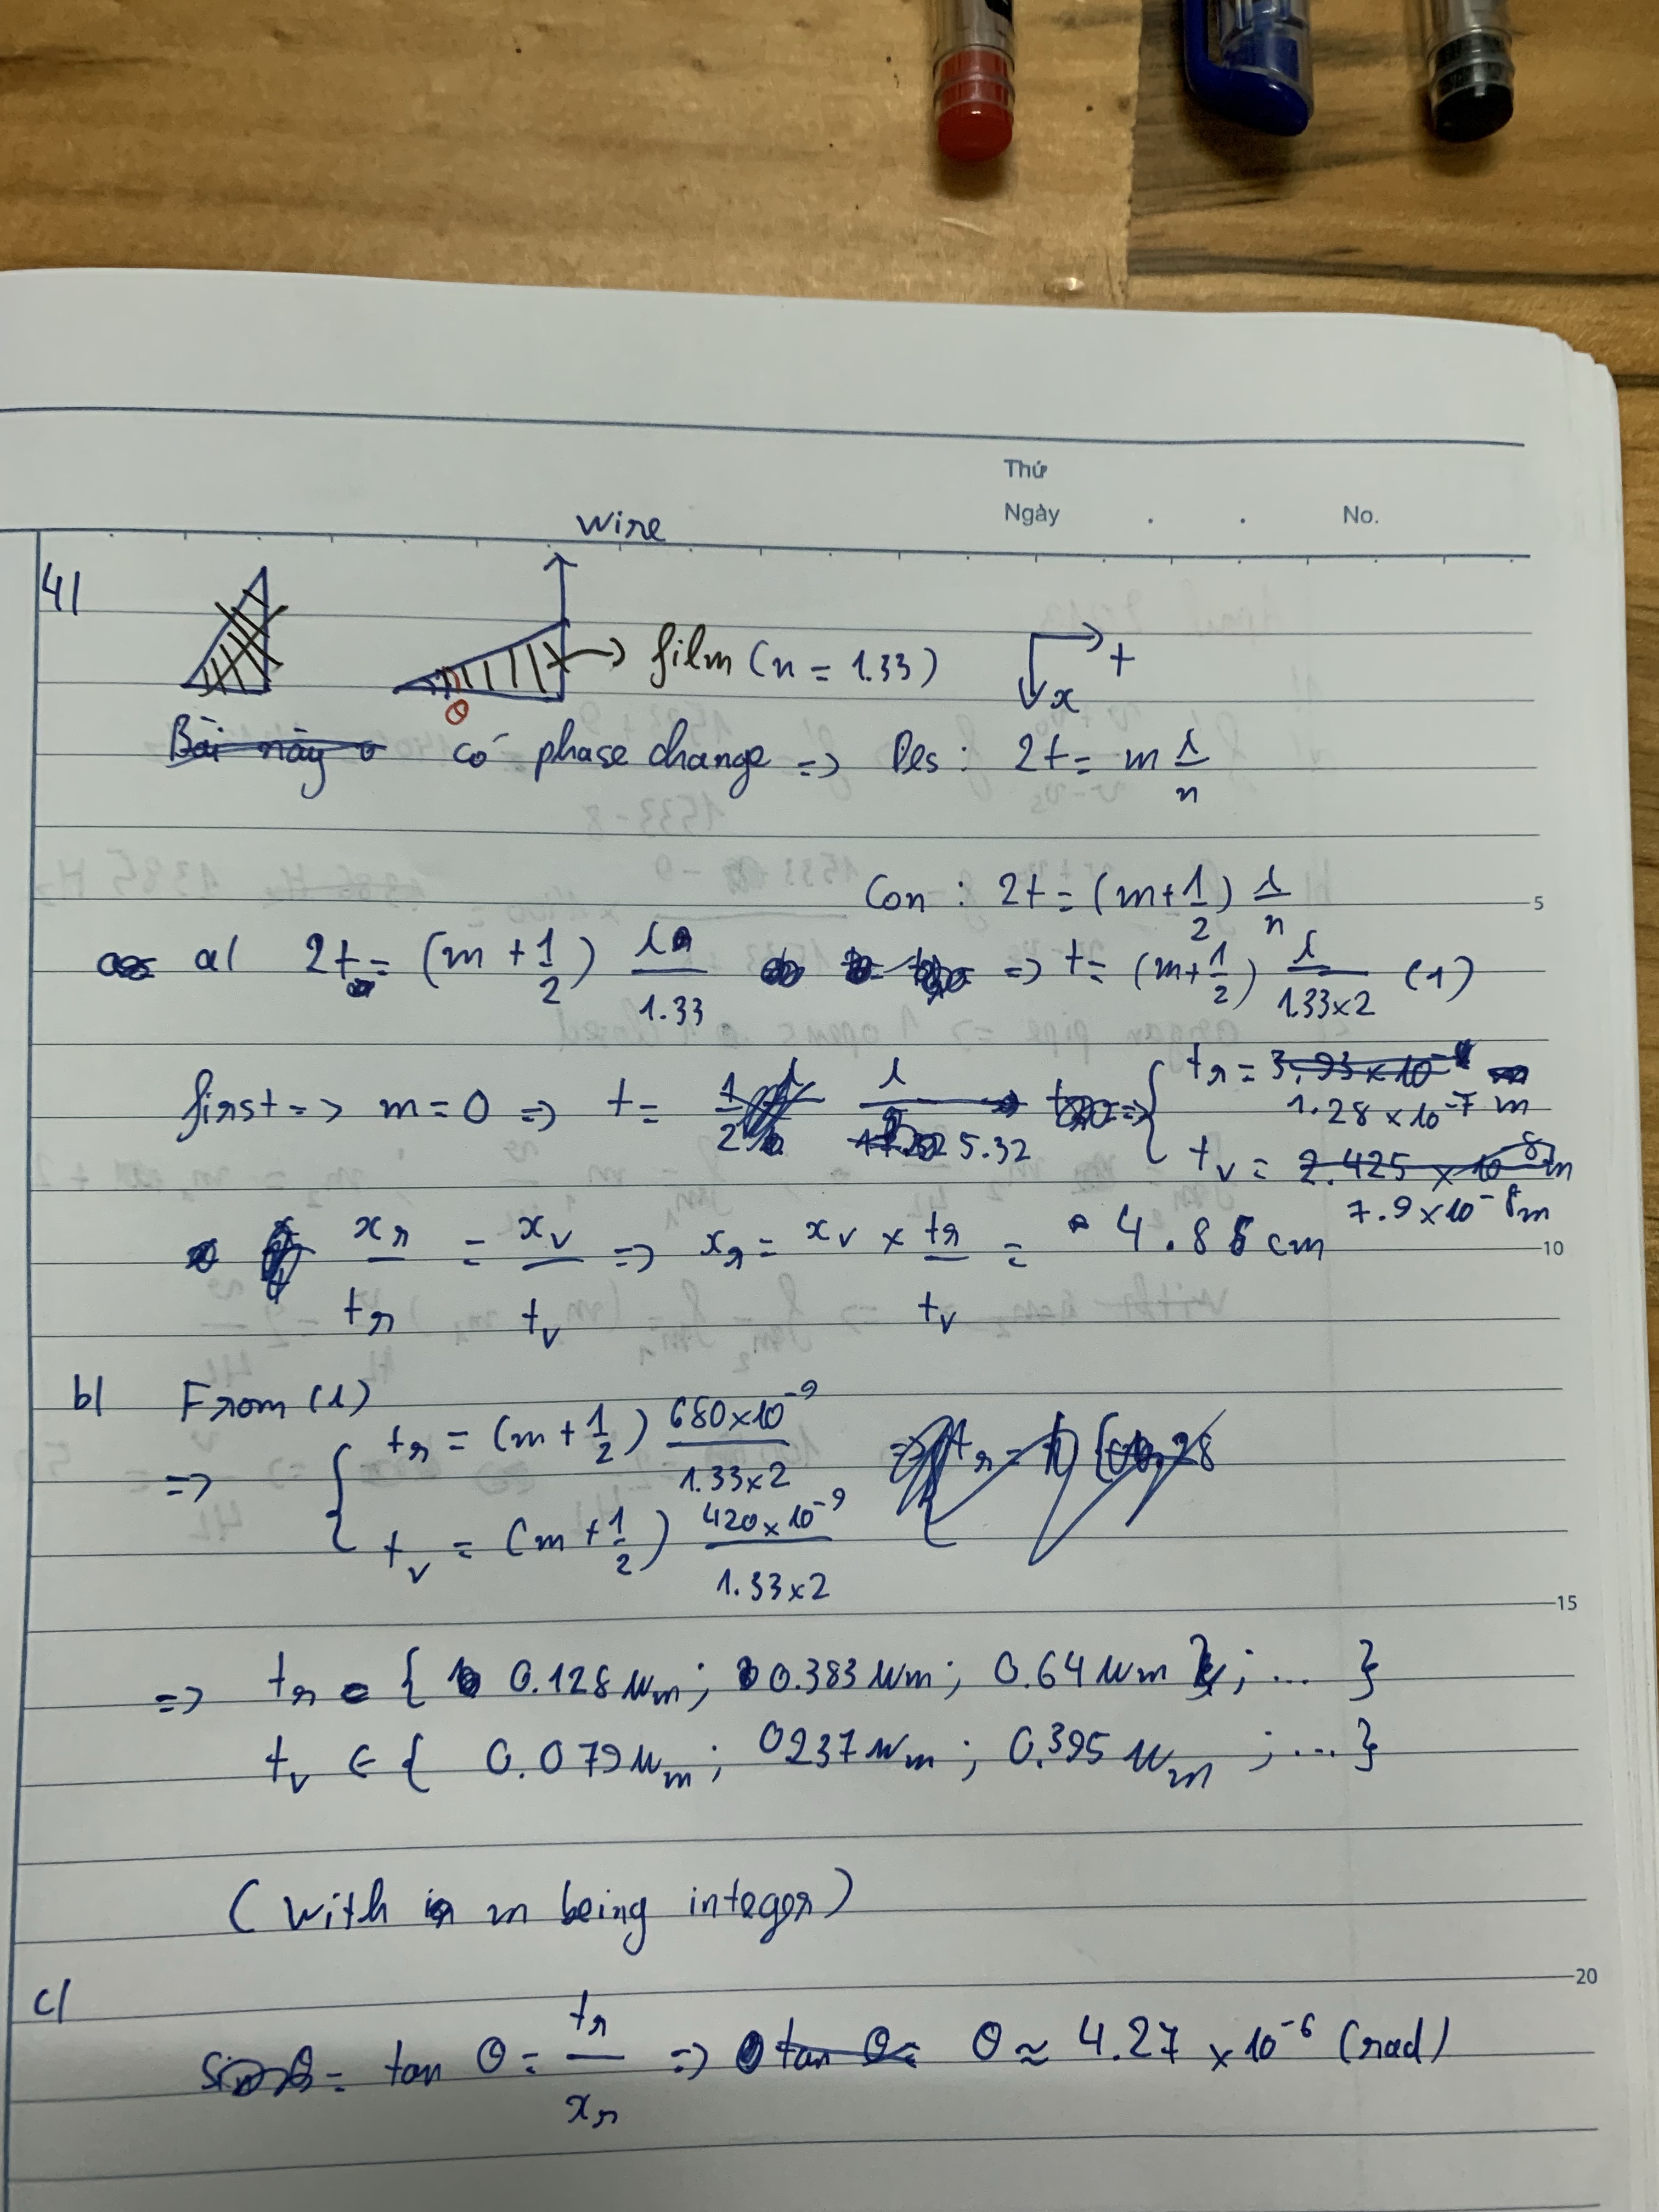 Thứ
Ngày . . No.
wire
4)
film (n = 1.33)
t
x
θ
Bài này có phase change => Des : 2t = m λ/n
Con : 2t = (m + 1/2) λ/n
5
a) 2t = (m + 1/2) λ/1.33 => t = (m + 1/2) λ/1.33×2 (1)
first => m = 0 => t = λ/5.32 => { tr = 3.93×10 1.28×10⁻⁷ m
tv = 2.425×10⁻⁸ m 7.9×10⁻⁸ m
xr/tr = xv/tv => xr = xv × tr/tv = 4.86 cm
10
b) From (1)
=> { tr = (m + 1/2) 680×10⁻⁹/1.33×2
tv = (m + 1/2) 420×10⁻⁹/1.33×2
15
=> tr = { 0.128 µm ; 0.383 µm ; 0.64 µm ; ... }
tv ∈ { 0.079 µm ; 0237 µm ; 0.395 µm ; ... }
(With m being integer)
20
c)
tan θ = tr/xr => tan θ = θ ≈ 4.27 × 10⁻⁶ (rad)